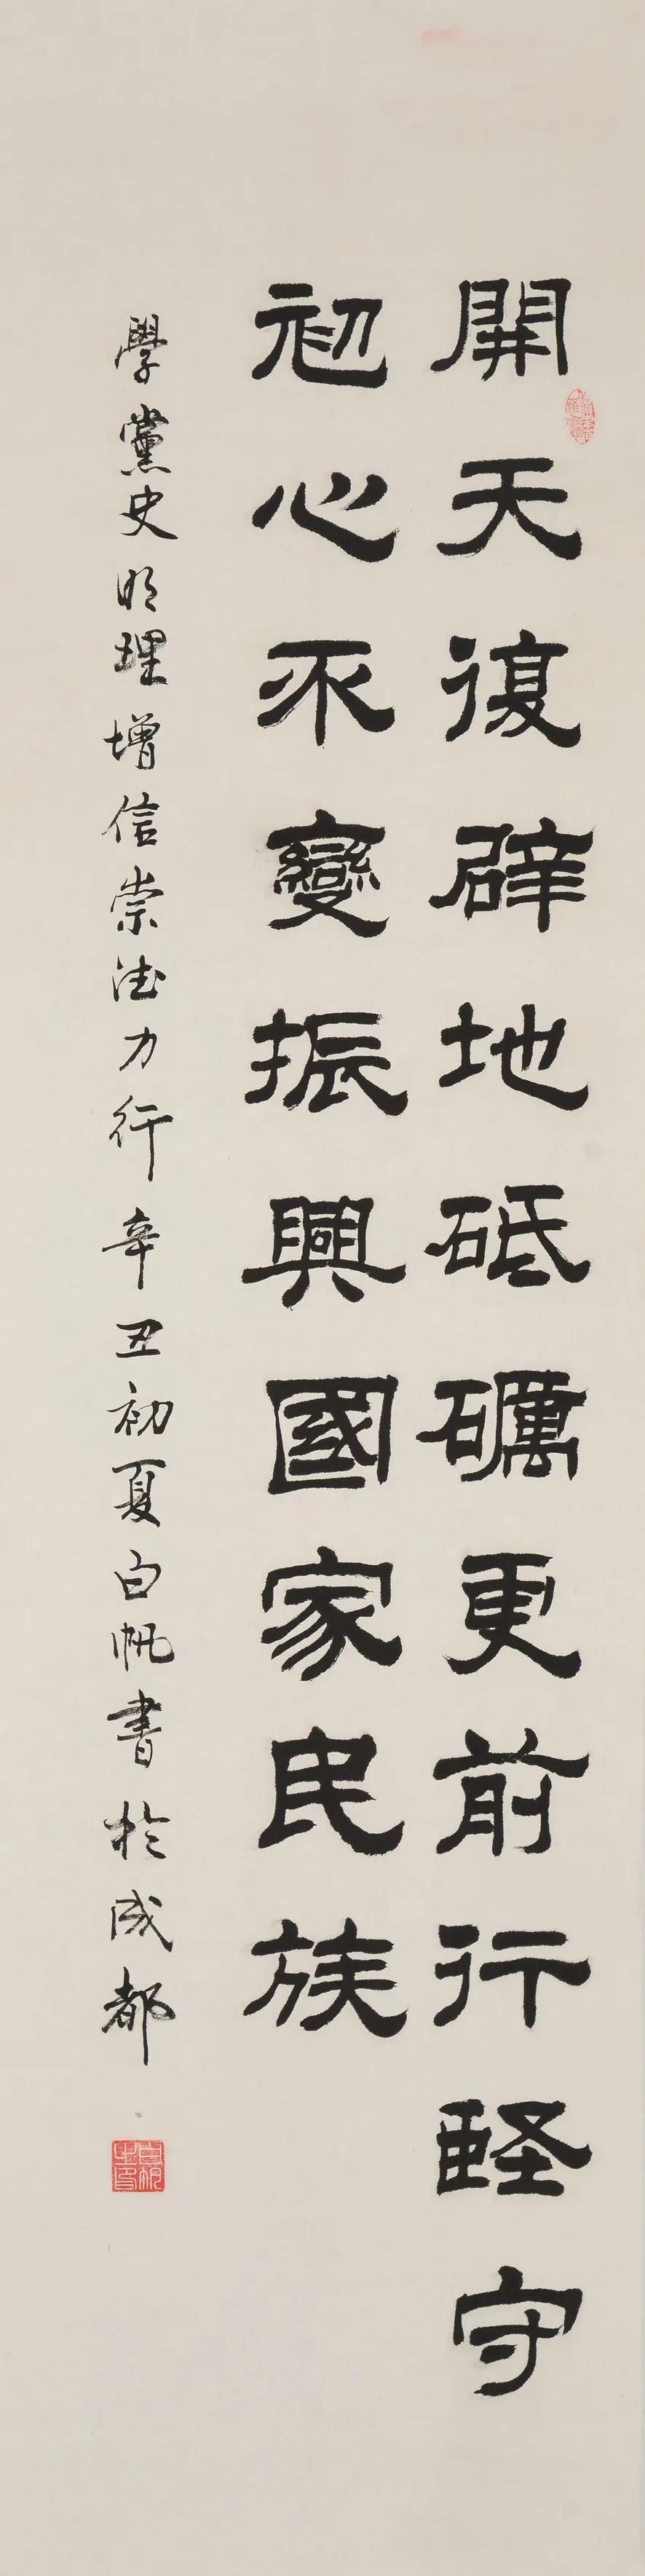 開天復辟地砥礪更前行堅守
初心不變振興國家民族
學黨史明理增信崇德力行辛丑初夏白帆書於成都